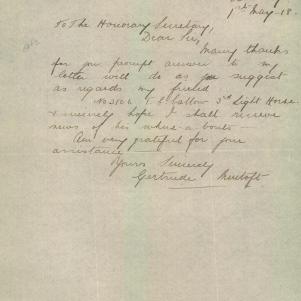 1st May - 18.
To The Honorary Secretary,
Dear Sir,
Many thanks
for you prompt answer to my
letter will do as you suggest
as regards my friend
No 3106 T. E. 3rd Light Horse.
& sincerely hope I shall receive
news of his where-a-bouts -
Am very grateful for your
assistance
Yours Sincerely
Gertrude